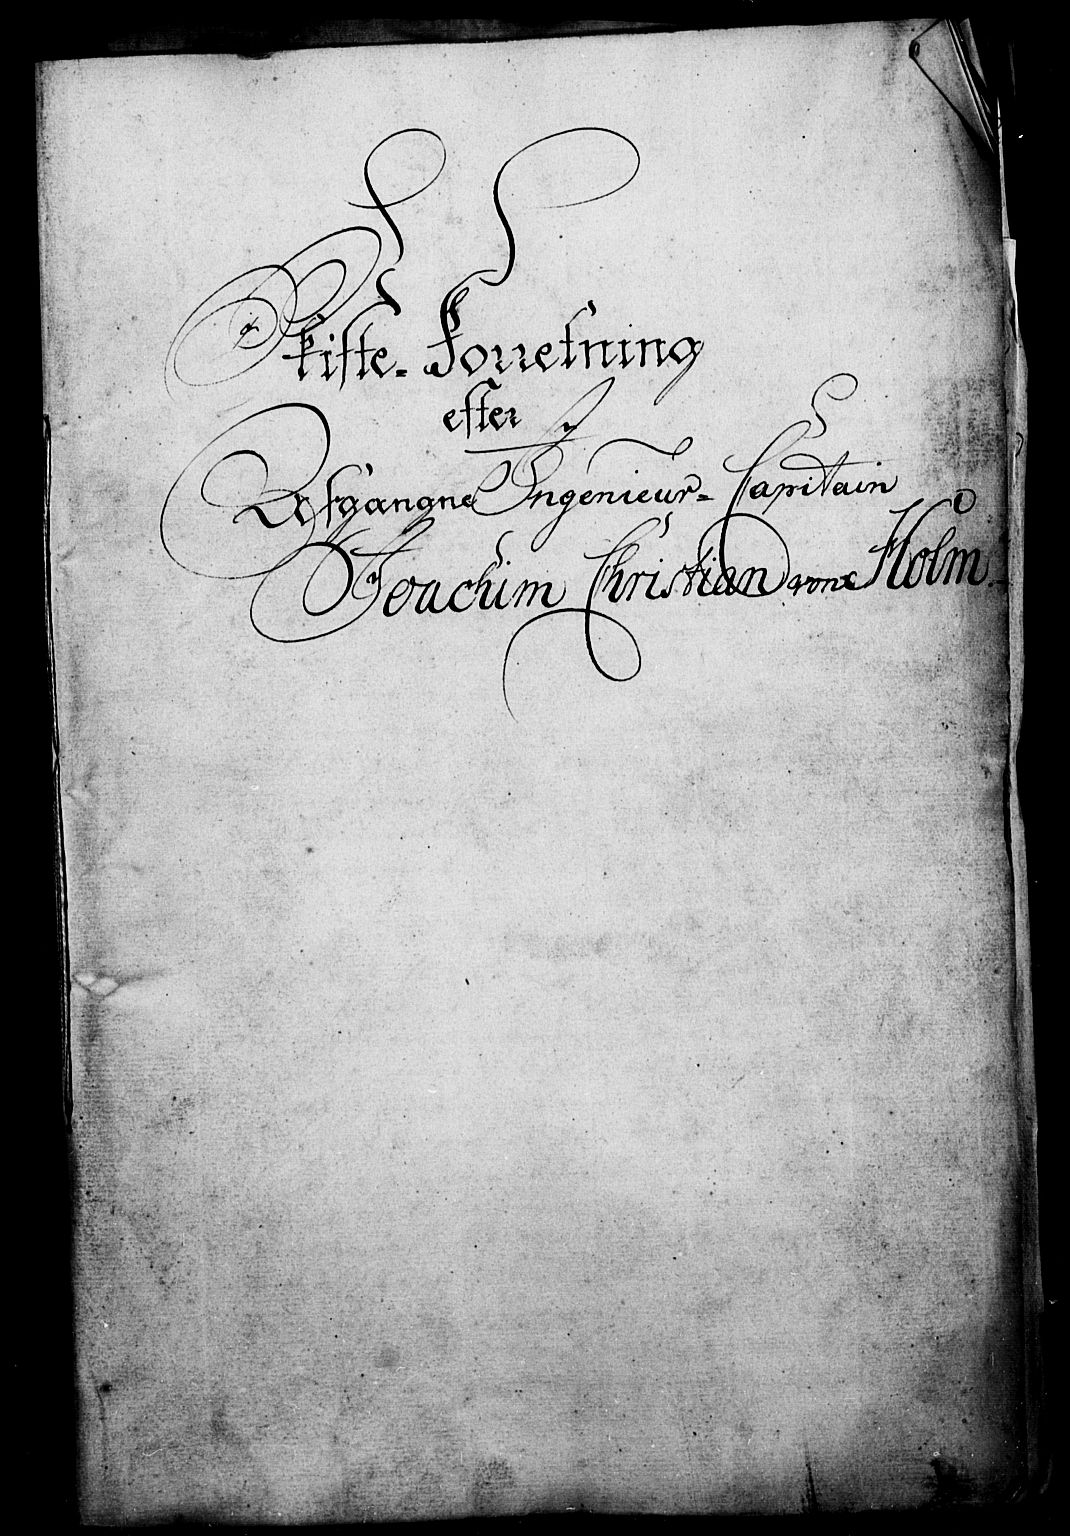 Skifte-Forretning
efter
Afgangne Ingenieur-Capitain
Joachim Christian von Holm.